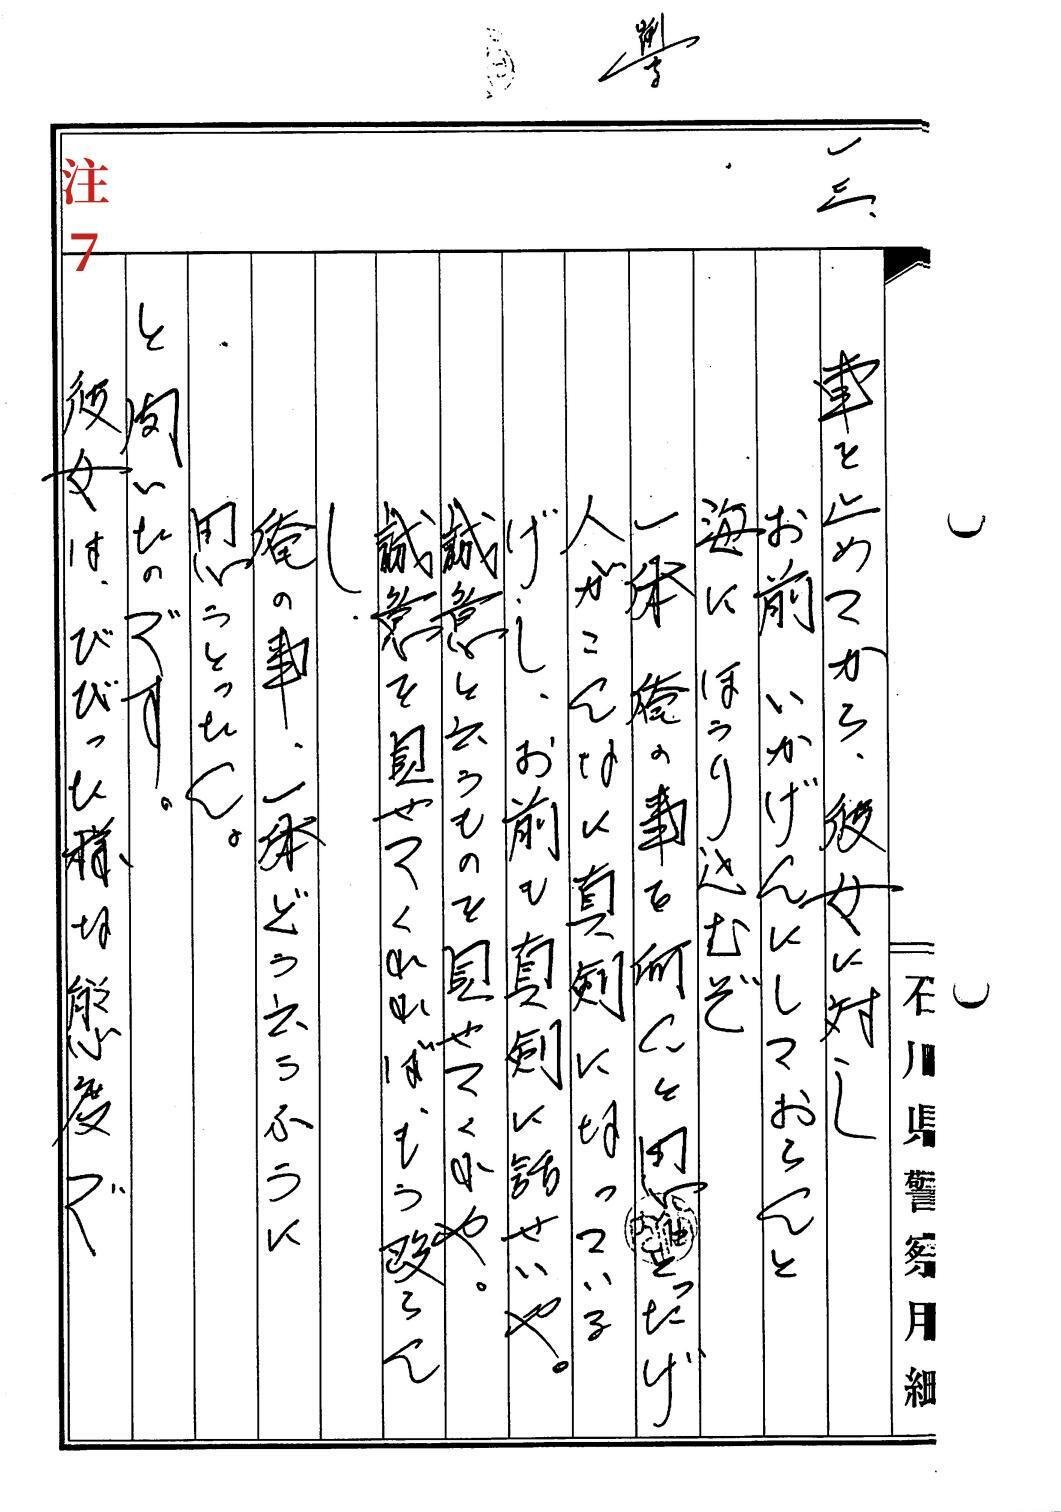 一三、
車を止めてから、彼女に対し
お前 いかげんにしておらんと
海に ほうり込むぞ
一体 俺の事を何んと思とったげ
人がこんなに真剣になっている
げし、お前も真剣に話せいや。
誠意と云うものを見せてくれや。
誠意を見せてくれればもう殴らん
し
俺の事、一体どう云うふうに
思うとったん。
と聞いたのです。
彼女は、びびった様な態度で
石川県警察用紙
注7